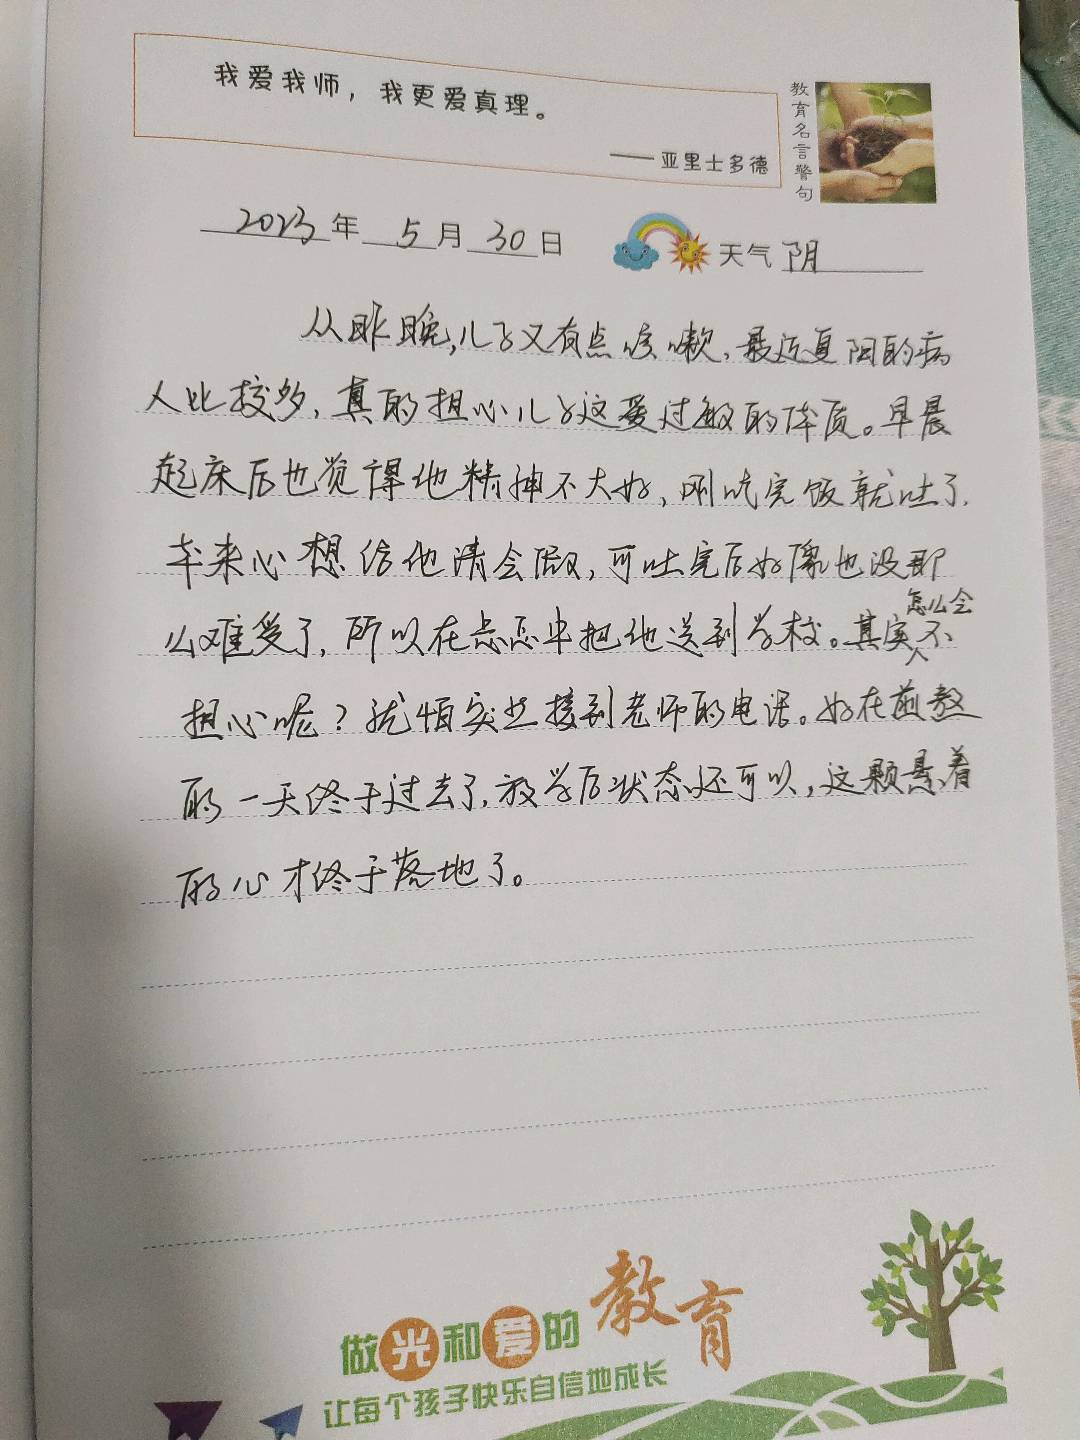 我爱我师，我更爱真理。
——亚里士多德
教育名言警句
2023年 5月30日 天气 阴
从昨晚,儿子又有点咳嗽,最近复阳的病
人比较多,真的担心儿子这爱过敏的体质。早晨
起床后也觉得他精神不大好,刚吃完饭就吐了,
本来心想给他请会假,可吐完后好像也没那
么难受了,所以在忐忑中把他送到学校。其实怎么会不
担心呢?就怕突然接到老师的电话。好在煎熬
的一天终于过去了,放学后状态还可以,这颗悬着
的心才终于落地了。
做光和爱的教育
让每个孩子快乐自信地成长